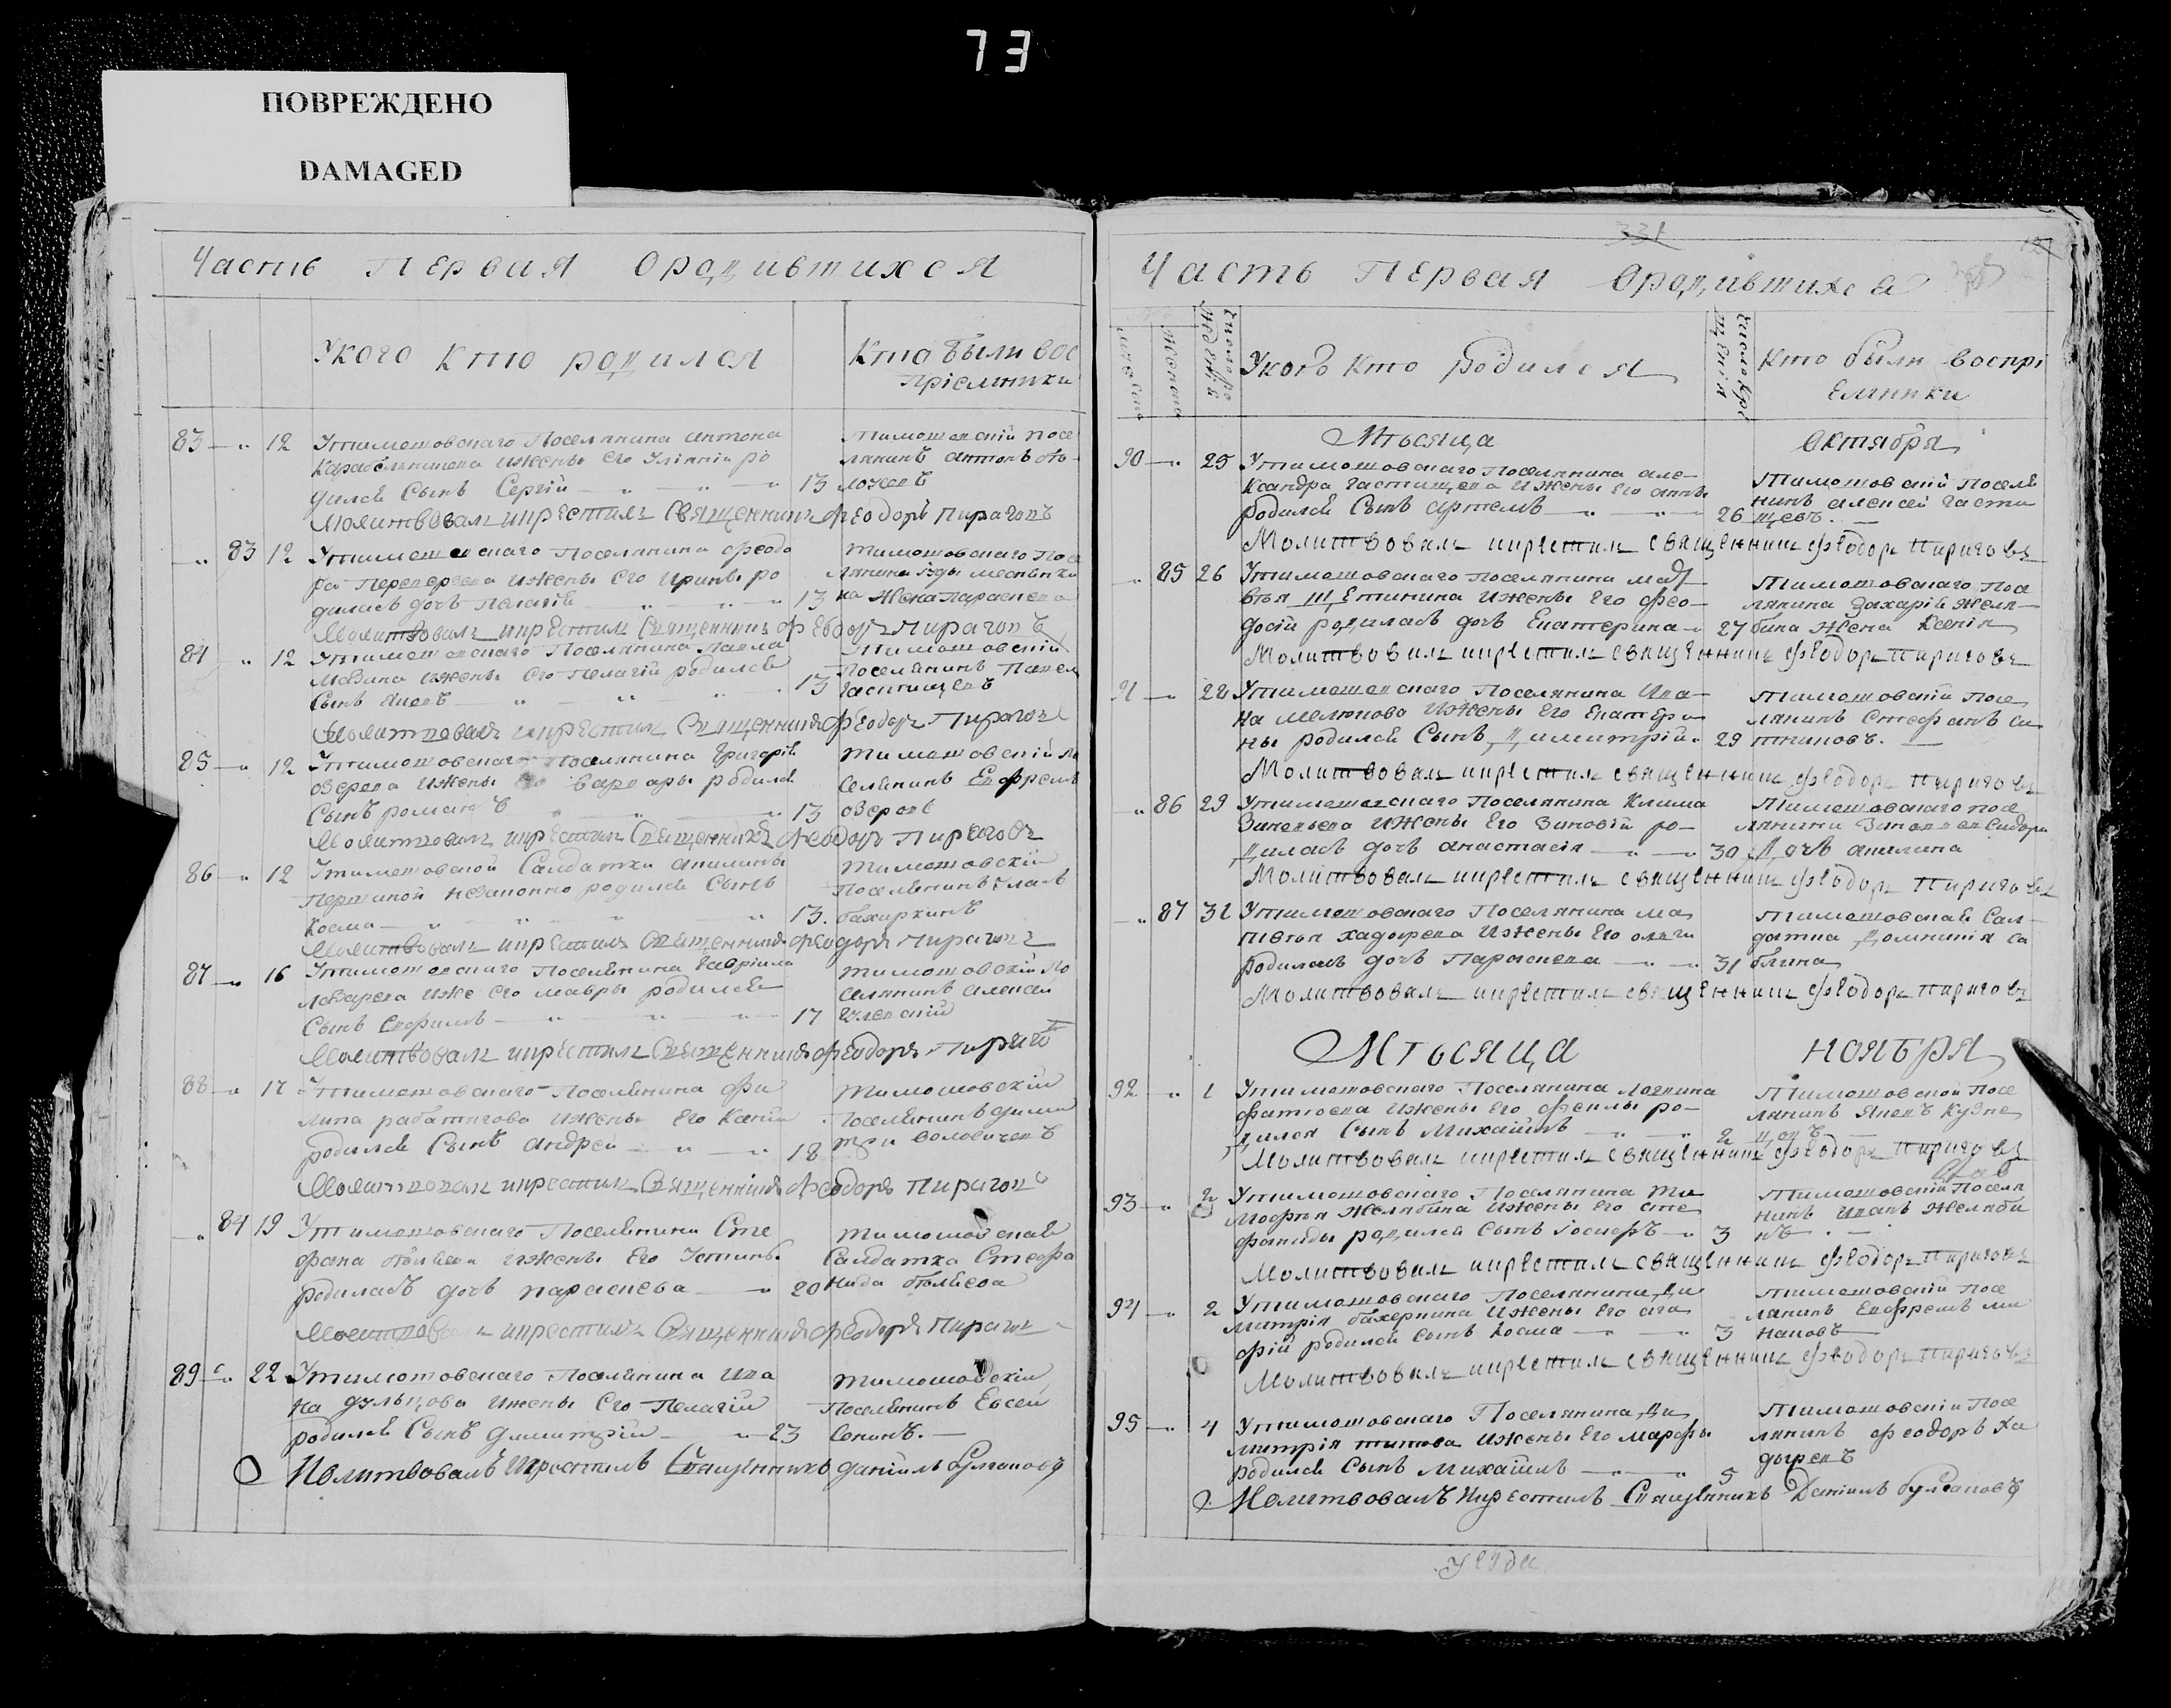 73
ПОВРЕЖДЕНО
DAMAGED
Часть Первая Ородившихся
Укого кто родился
Кто были вос
пріемники
83 — „ 12 Утимошовскаго Поселянина антона
ижены Его Уліяніи ро
дилсе Сынъ Сергій — „ — „ — „ 13
Тимошовскій посе
лянинъ антонъ
Молитвовалъ икрестилъ Священникъ Феодоръ Пироговъ
„ 83 12 Утимошовскаго Поселянина феодо
ра ижены Его Ирины ро
дилась дочь Пелагія — „ — „ 13
Тимошовскаго Посе
лянина
на Жена Параскева
Молитвовалъ икрестилъ Священникъ Феодоръ Пироговъ
84 „ 12 Утимошовскаго Поселянина Павла
ижены Его Пелагіи родилсе
Сынъ Яковъ — „ — „ 13
Тимошовскій
Поселянинъ Павел
Частищевъ
Молитвовалъ икрестилъ Священникъ Феодоръ Пироговъ
85 — „ 12 Утимошовскаго Поселянина Григорія
озерова ижены Его варвары родилсе
Сынъ романъ „ „ „ 13
Тимошовскій По
селянинъ Евфремъ
озеровъ
Молитвовалъ икрестилъ Священникъ Феодоръ Пироговъ
86 — „ 12 Утимошовской Салдатки акилины
незаконно родилсе Сынъ
Косма — „ „ „ „ 13.
Тимошовскій
Поселянинъ Власъ
бахиркинъ
Молитвовалъ икрестилъ Священникъ Феодоръ Пироговъ
87 — „ 16 Утимошовскаго Поселянина Гавріила
Лазарева иже Его мавры родилсе
Сынъ Евфимъ — „ — „ — „ 17
Тимошовскій По
селянинъ Алексей
Молитвовалъ икрестилъ Священникъ Феодоръ Пирого
88 — „ 17 Утимошовскаго Поселянина фи
липа ижены Его Ксеніи
родилсе Сынъ андрей — „ — „ 18
Тимошовскій
Поселянинъ дими
трй
Молитвовалъ икрестилъ Священникъ Феодоръ Пироговъ
— „ 84 19 Утимошовскаго Поселянина Сте
фана ижены Его Устины
родиласъ дочь параскева — „ 20
Тимошовская
Салдатка Стефа
нида
Молитвовалъ икрестилъ Священникъ Феодоръ Пирогов
89 — „ 22 Утимошовскаго Поселянина Ива
на дульцова ижены Его Пелагіи
родилсе Сынъ Димитрій — „ 23
Тимошовскій
Поселянинъ Евсей
Сенинъ. —
Молитвовалъ икрестилъ Священникъ Даніилъ Булгаковъ
331
Часть Первая Ородившихся
Укого Кто родился
Кто были воспрі
Емники
Мѣсяца Октября
90 — „ 25 Утимошовскаго Поселянина але-
ксандра Частищева ижены Его анны
родилсе Сынъ артемъ — „ — „ 26
Тимошовскій Поселя
нинъ алексей Части
щевъ. —
Молитвовалъ икрестилъ священникъ Феодоръ Пироговъ
„ 85 26 Утимошовскаго Поселянина мат
вѣя Щетинина ижены Его фео-
досіи родиласъ дочь Екатерина — „ 27
Тимошовскаго Посе
лянина Захарія Желя-
бина Жена Ксенія
Молитвовалъ икрестилъ священникъ Феодоръ Пироговъ
91 — „ 28 Утимошовскаго Поселянина Ива-
на мелюкова ижены Его Екатери
ны родилсе Сынъ Димитрій. 29
Тимошовскій Посе
лянинъ Стефанъ
Молитвовалъ икрестилъ священникъ Феодоръ Пироговъ
„ 86 29 Утимошовскаго Поселянина Клима
Зиновьева ижены Его Зиновіи ро-
диласъ дочь анастасія — „ — „ 30
Тимошовскаго посе
лянина
дочь акилина
Молитвовалъ икрестилъ священникъ Феодоръ Пироговъ
„ 87 31 Утимошовскаго Поселянина ма
твѣя хадырева ижены Его ольги
родиласъ дочь Параскева — „ — „ 31
Тимошовская Сал-
датка Домникія са
блина
Молитвовалъ икрестилъ священникъ Феодоръ Пироговъ
Мѣсяца Ноября
92 — „ 1 Утимошовскаго Поселянина Логвина
ижены Его феклы ро-
дился Сынъ Михаилъ — „ — „ 2
Тимошовской Посе
лянинъ Яковъ Кузне
цовъ —
Молитвовалъ икрестилъ священникъ Феодоръ Пироговъ
93 — „ 2 Утимошовскаго Поселянина ти
мофея Желябина ижены Его сте
фаниды родилсе сынъ Іосифъ — „ 3
Тимошовскій Поселя
нинъ Иванъ Желяби
нъ. —
Молитвовалъ икрестилъ священникъ Феодоръ Пироговъ
94 — „ 2 Утимошовскаго Поселянина Ди
митрія бахеркина ижены Его ага
фіи родилсе сынъ Косма — „ — „ 3
Тимошовскій Посе
лянинъ Евфремъ ми
наковъ —
Молитвовалъ икрестилъ священникъ Феодоръ Пироговъ
95 — „ 4 Утимошовскаго Поселянина Ди
митрія титова ижены Его марфы
родилсе Сынъ михаилъ — „ — „ 5
Тимошовскій Посе
лянинъ феодоръ Ха
дыревъ
Молитвовалъ икрестилъ Священникъ Даніилъ Булгаковъ
уезда